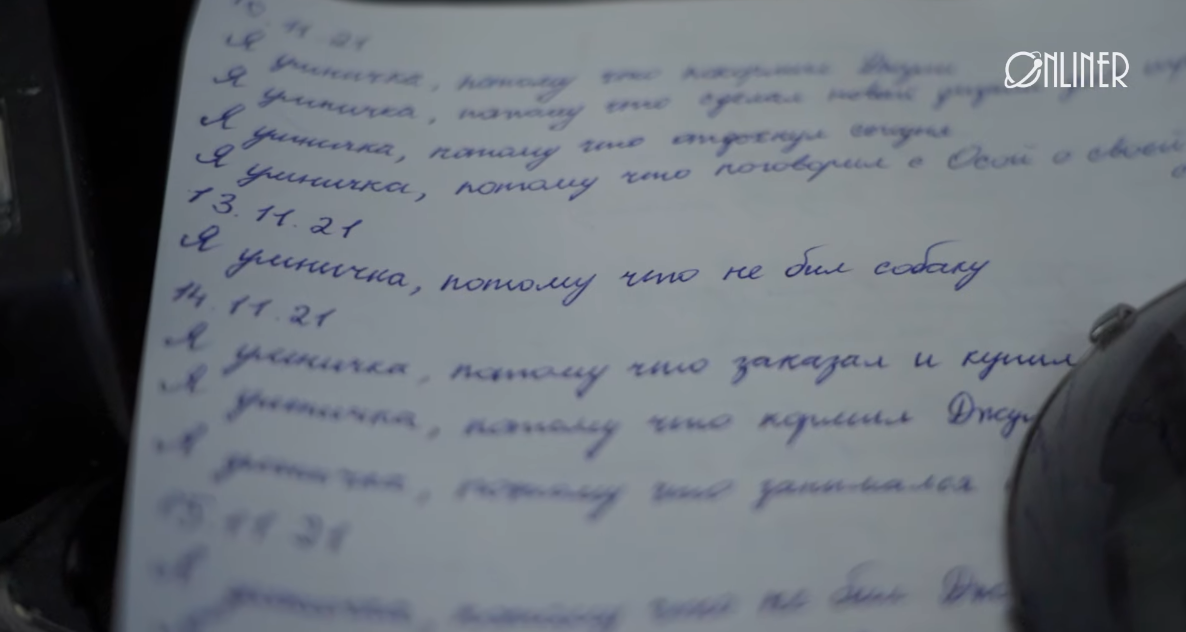 11.21
ONLINER
Я умничка, потому что покормил Джули
Я умничка, потому что сделал новый
Я умничка, потому что отдохнул сегодня
Я умничка, потому что поговорил с Осой о своей
13.11.21
Я умничка, потому что не бил собаку
14.11.21
Я умничка, потому что заказал и купил
Я умничка, потому что кормил Джу
Я умничка, потому что занимался
15.11.21
Я умничка, потому что не бил Дж